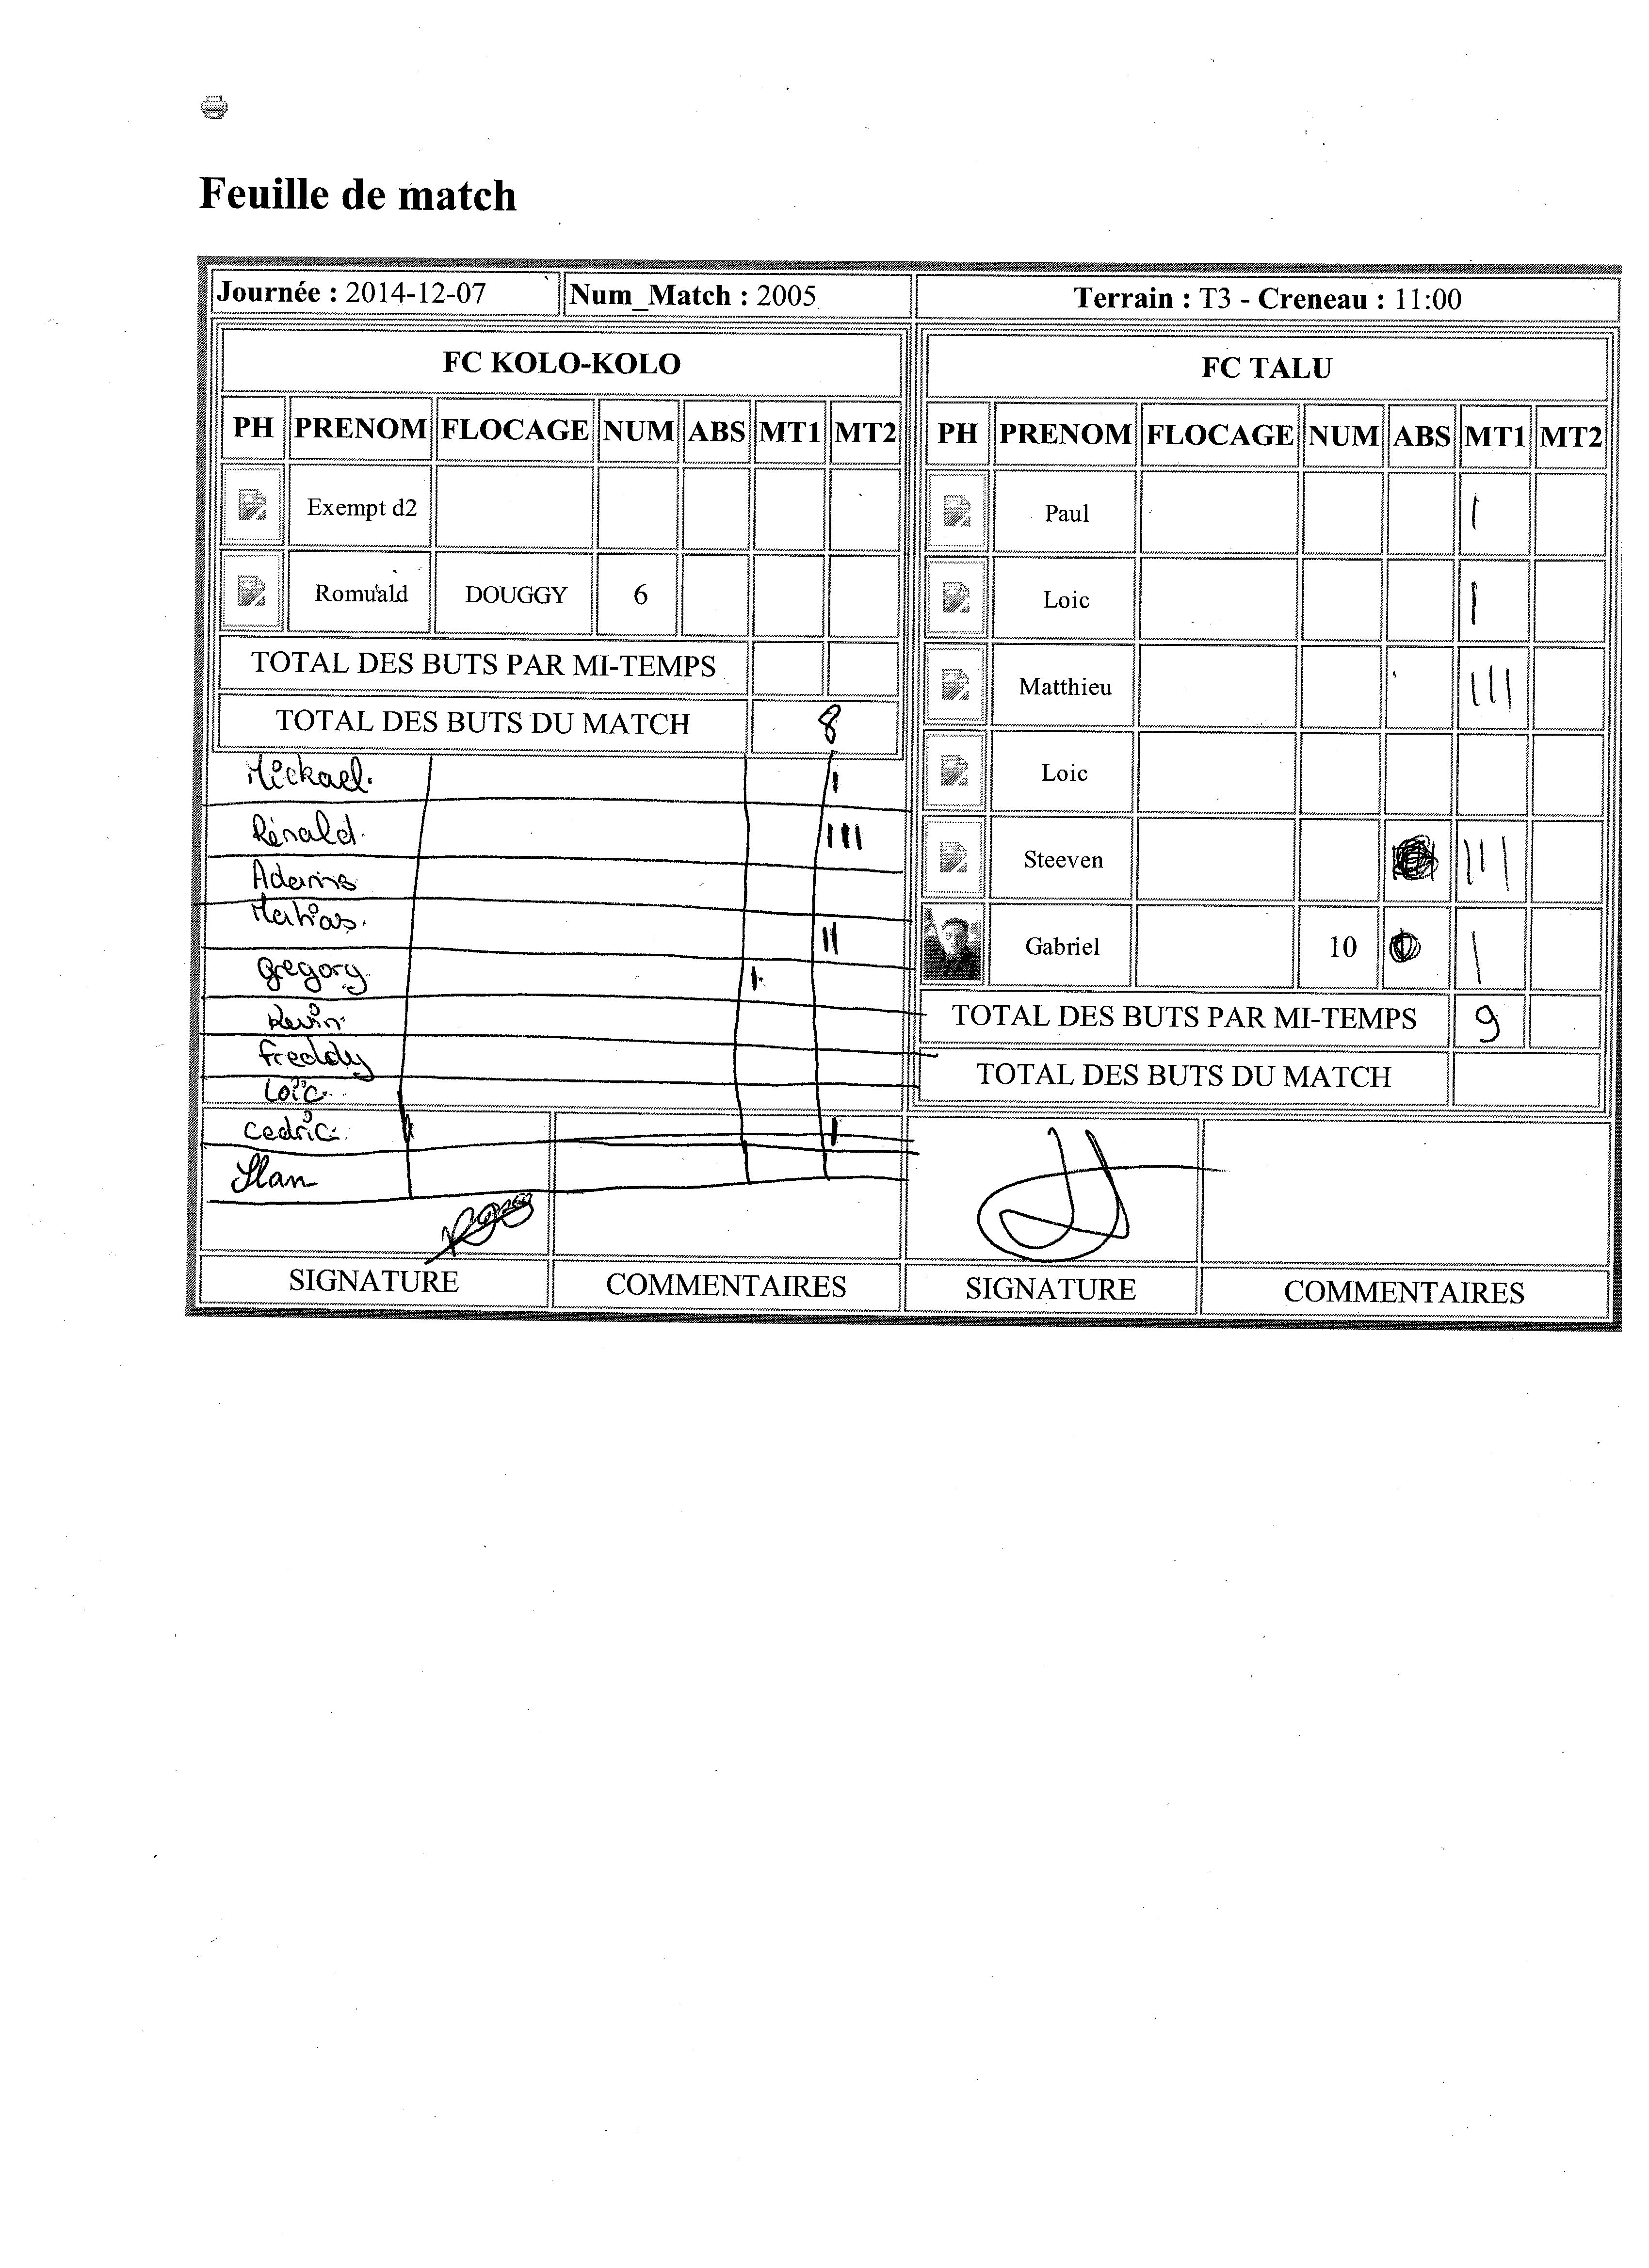 Feuille de match
Journée : 2014-12-07 Num_Match : 2005 Terrain : T3 - Creneau : 11:00
FC KOLO-KOLO
PH PRENOM FLOCAGE NUM ABS MT1 MT2
Exempt d2
Romuald DOUGGY 6
TOTAL DES BUTS PAR MI-TEMPS
TOTAL DES BUTS DU MATCH 8
Mickael. I
Rénald. III
Adams
Mathias. II
Gregory. I
Kevin
Freddy
Loïc
Cedric I
Ilan
SIGNATURE COMMENTAIRES
FC TALU
PH PRENOM FLOCAGE NUM ABS MT1 MT2
Paul I
Loic I
Matthieu III
Loic
Steeven III
Gabriel 10 I
TOTAL DES BUTS PAR MI-TEMPS 9
TOTAL DES BUTS DU MATCH
SIGNATURE COMMENTAIRES